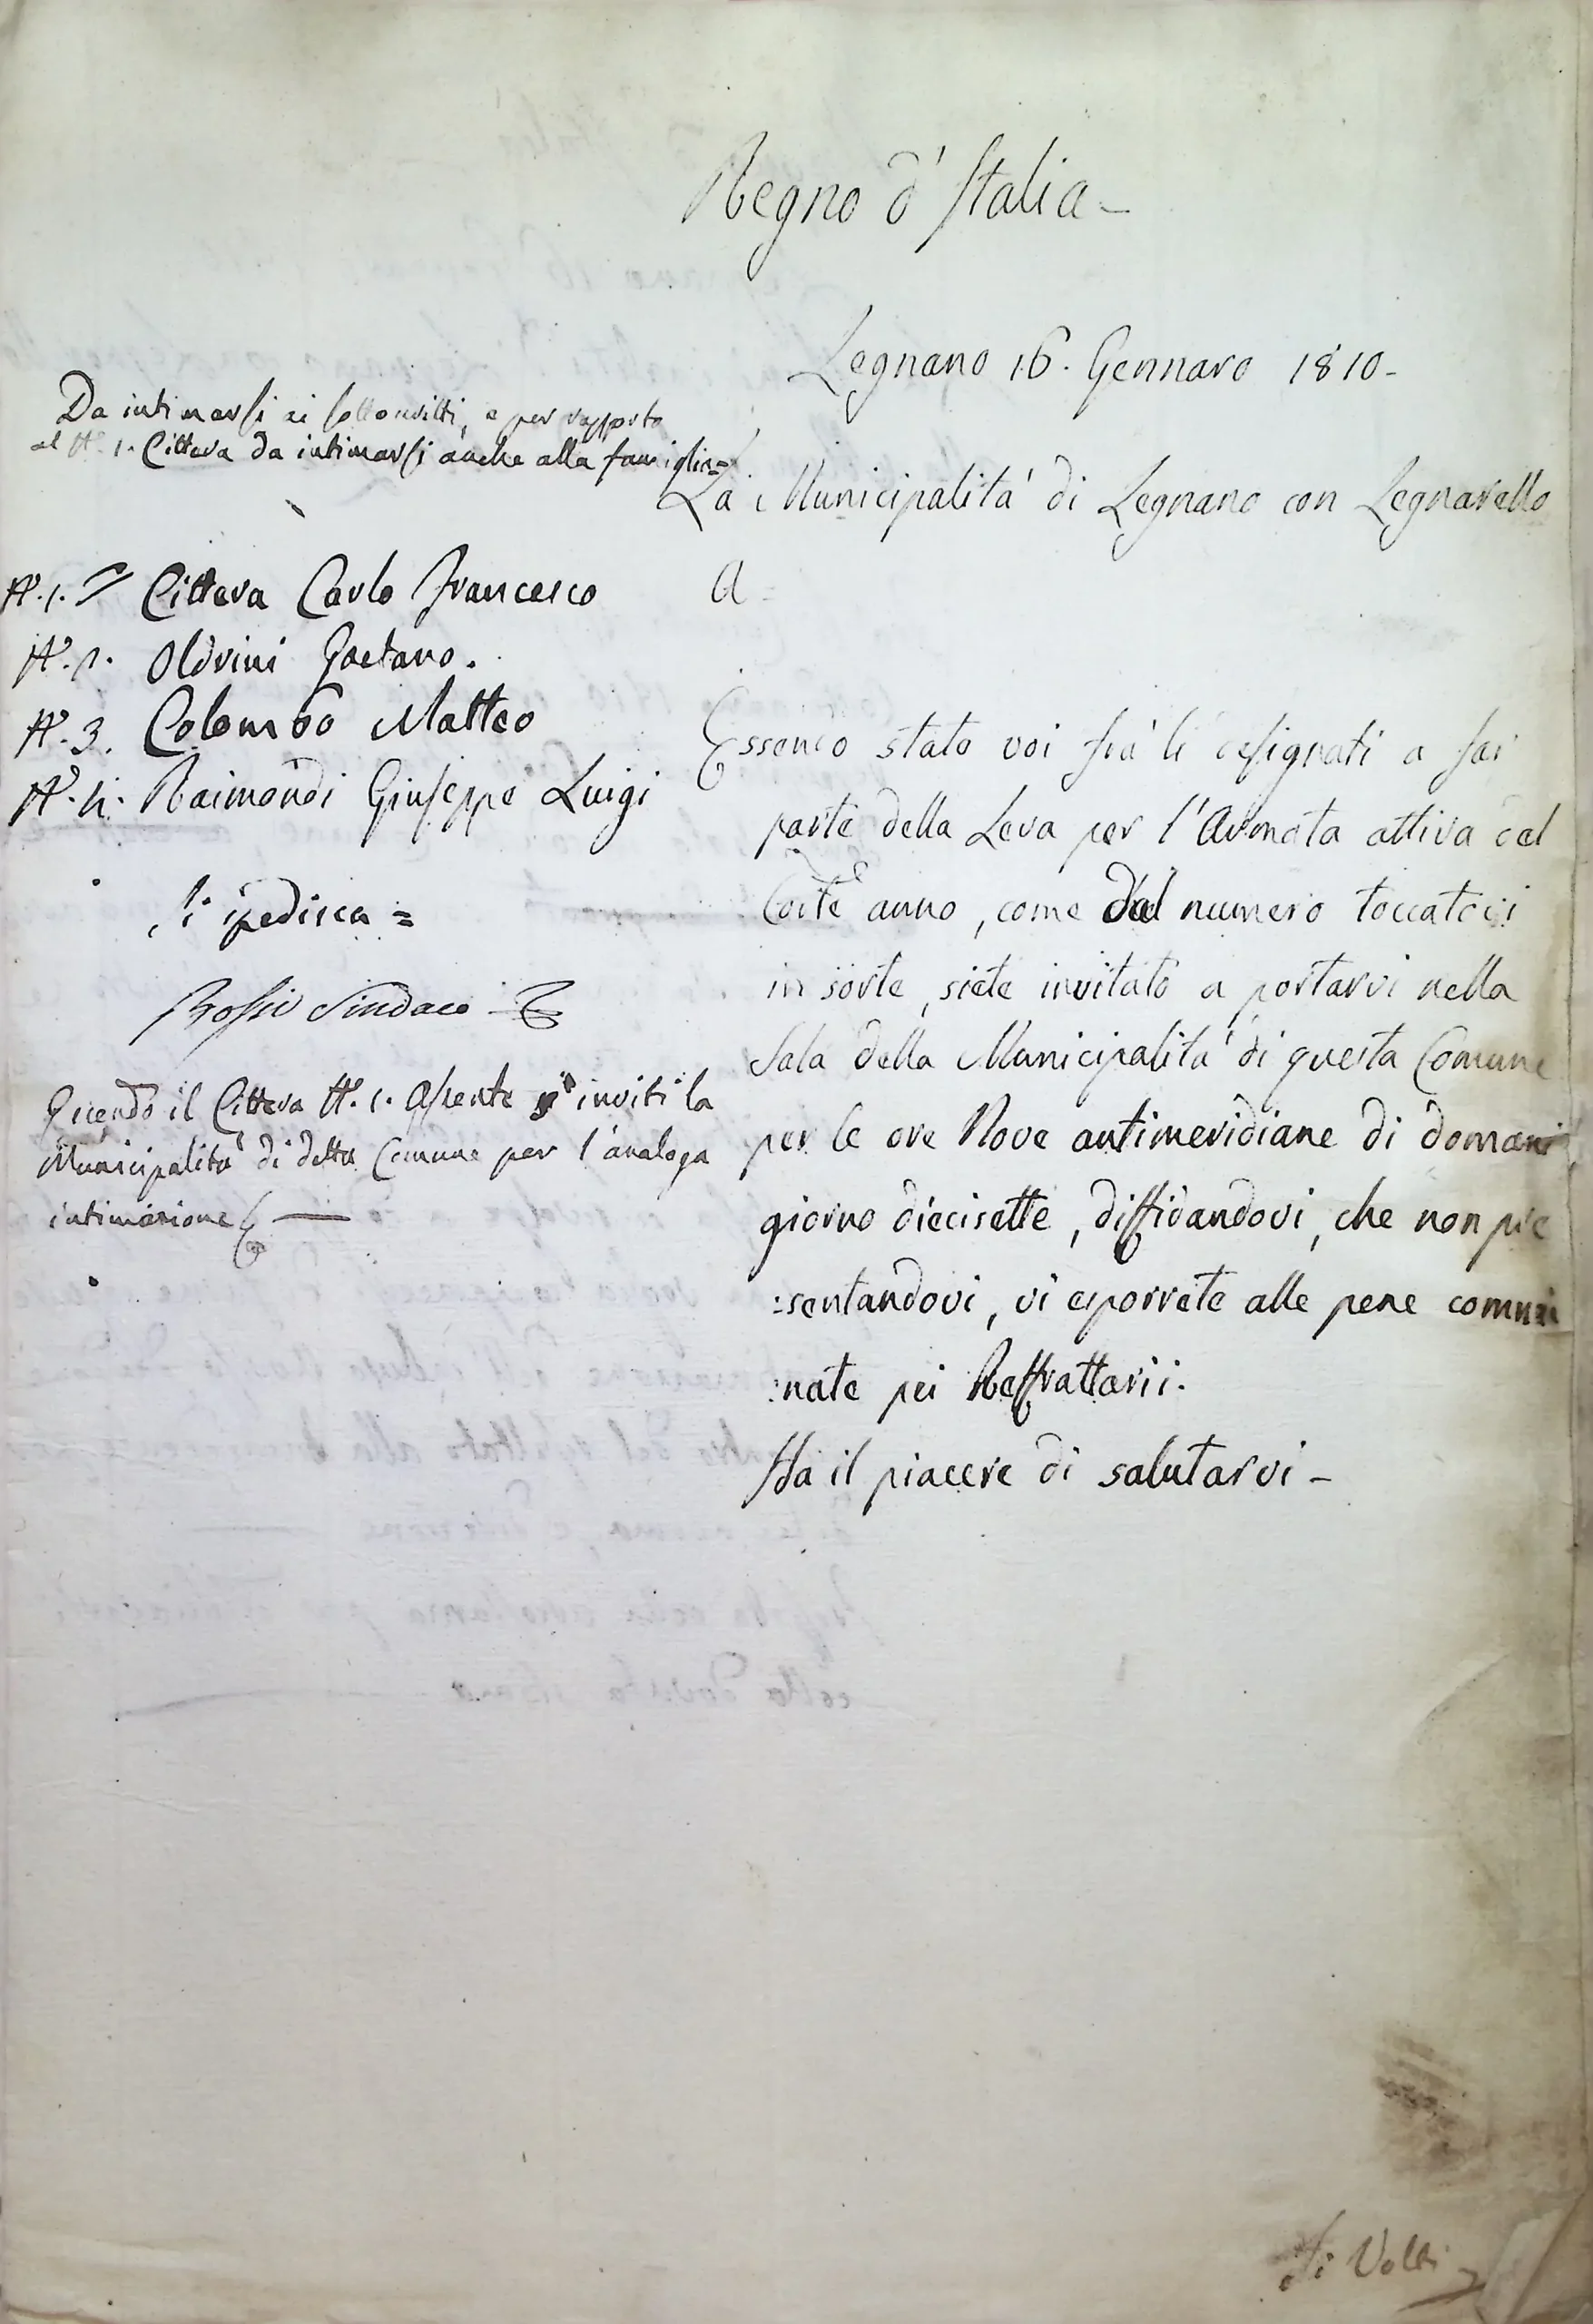 Regno d'Italia -
Legnano 16. Gennaro 1810 -
Da intimarsi ai sottoscritti, e per rapporto
al N.° 1. Cittera da intimarsi anche alla famiglia =
La Municipalita' di Legnano con Legnarello
a
N.° 1. Cittera Carlo Francesco
N.° 2. Oldrini Gaetano.
N.° 3. Colombo Matteo
N.° 4. Raimondi Giuseppe Luigi
Si spedisca =
Rossi Sindaco
Essendo il Cittera N.° 1. Assente si inviti la
Municipalita' di detta Comune per l'analoga
intimazione
Essendo stato voi fra' li designati a far
parte della Leva per l'Armata attiva del
Corte anno, come dal numero toccatovi
in sorte, siete invitato a portarvi nella
Sala della Municipalita' di questa Comune
per le ore Nove antimeridiane di domani
giorno diecisette, diffidandovi, che non pre
:sentandovi, vi esporrete alle pene commi
:nate pei Reffrattarii.
Ha il piacere di salutarvi -
Si Volti